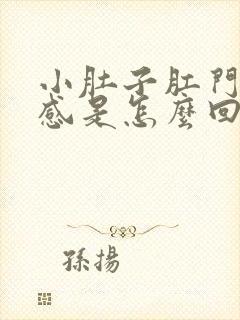 小肚子肛門
感是怎麼回
孫揚